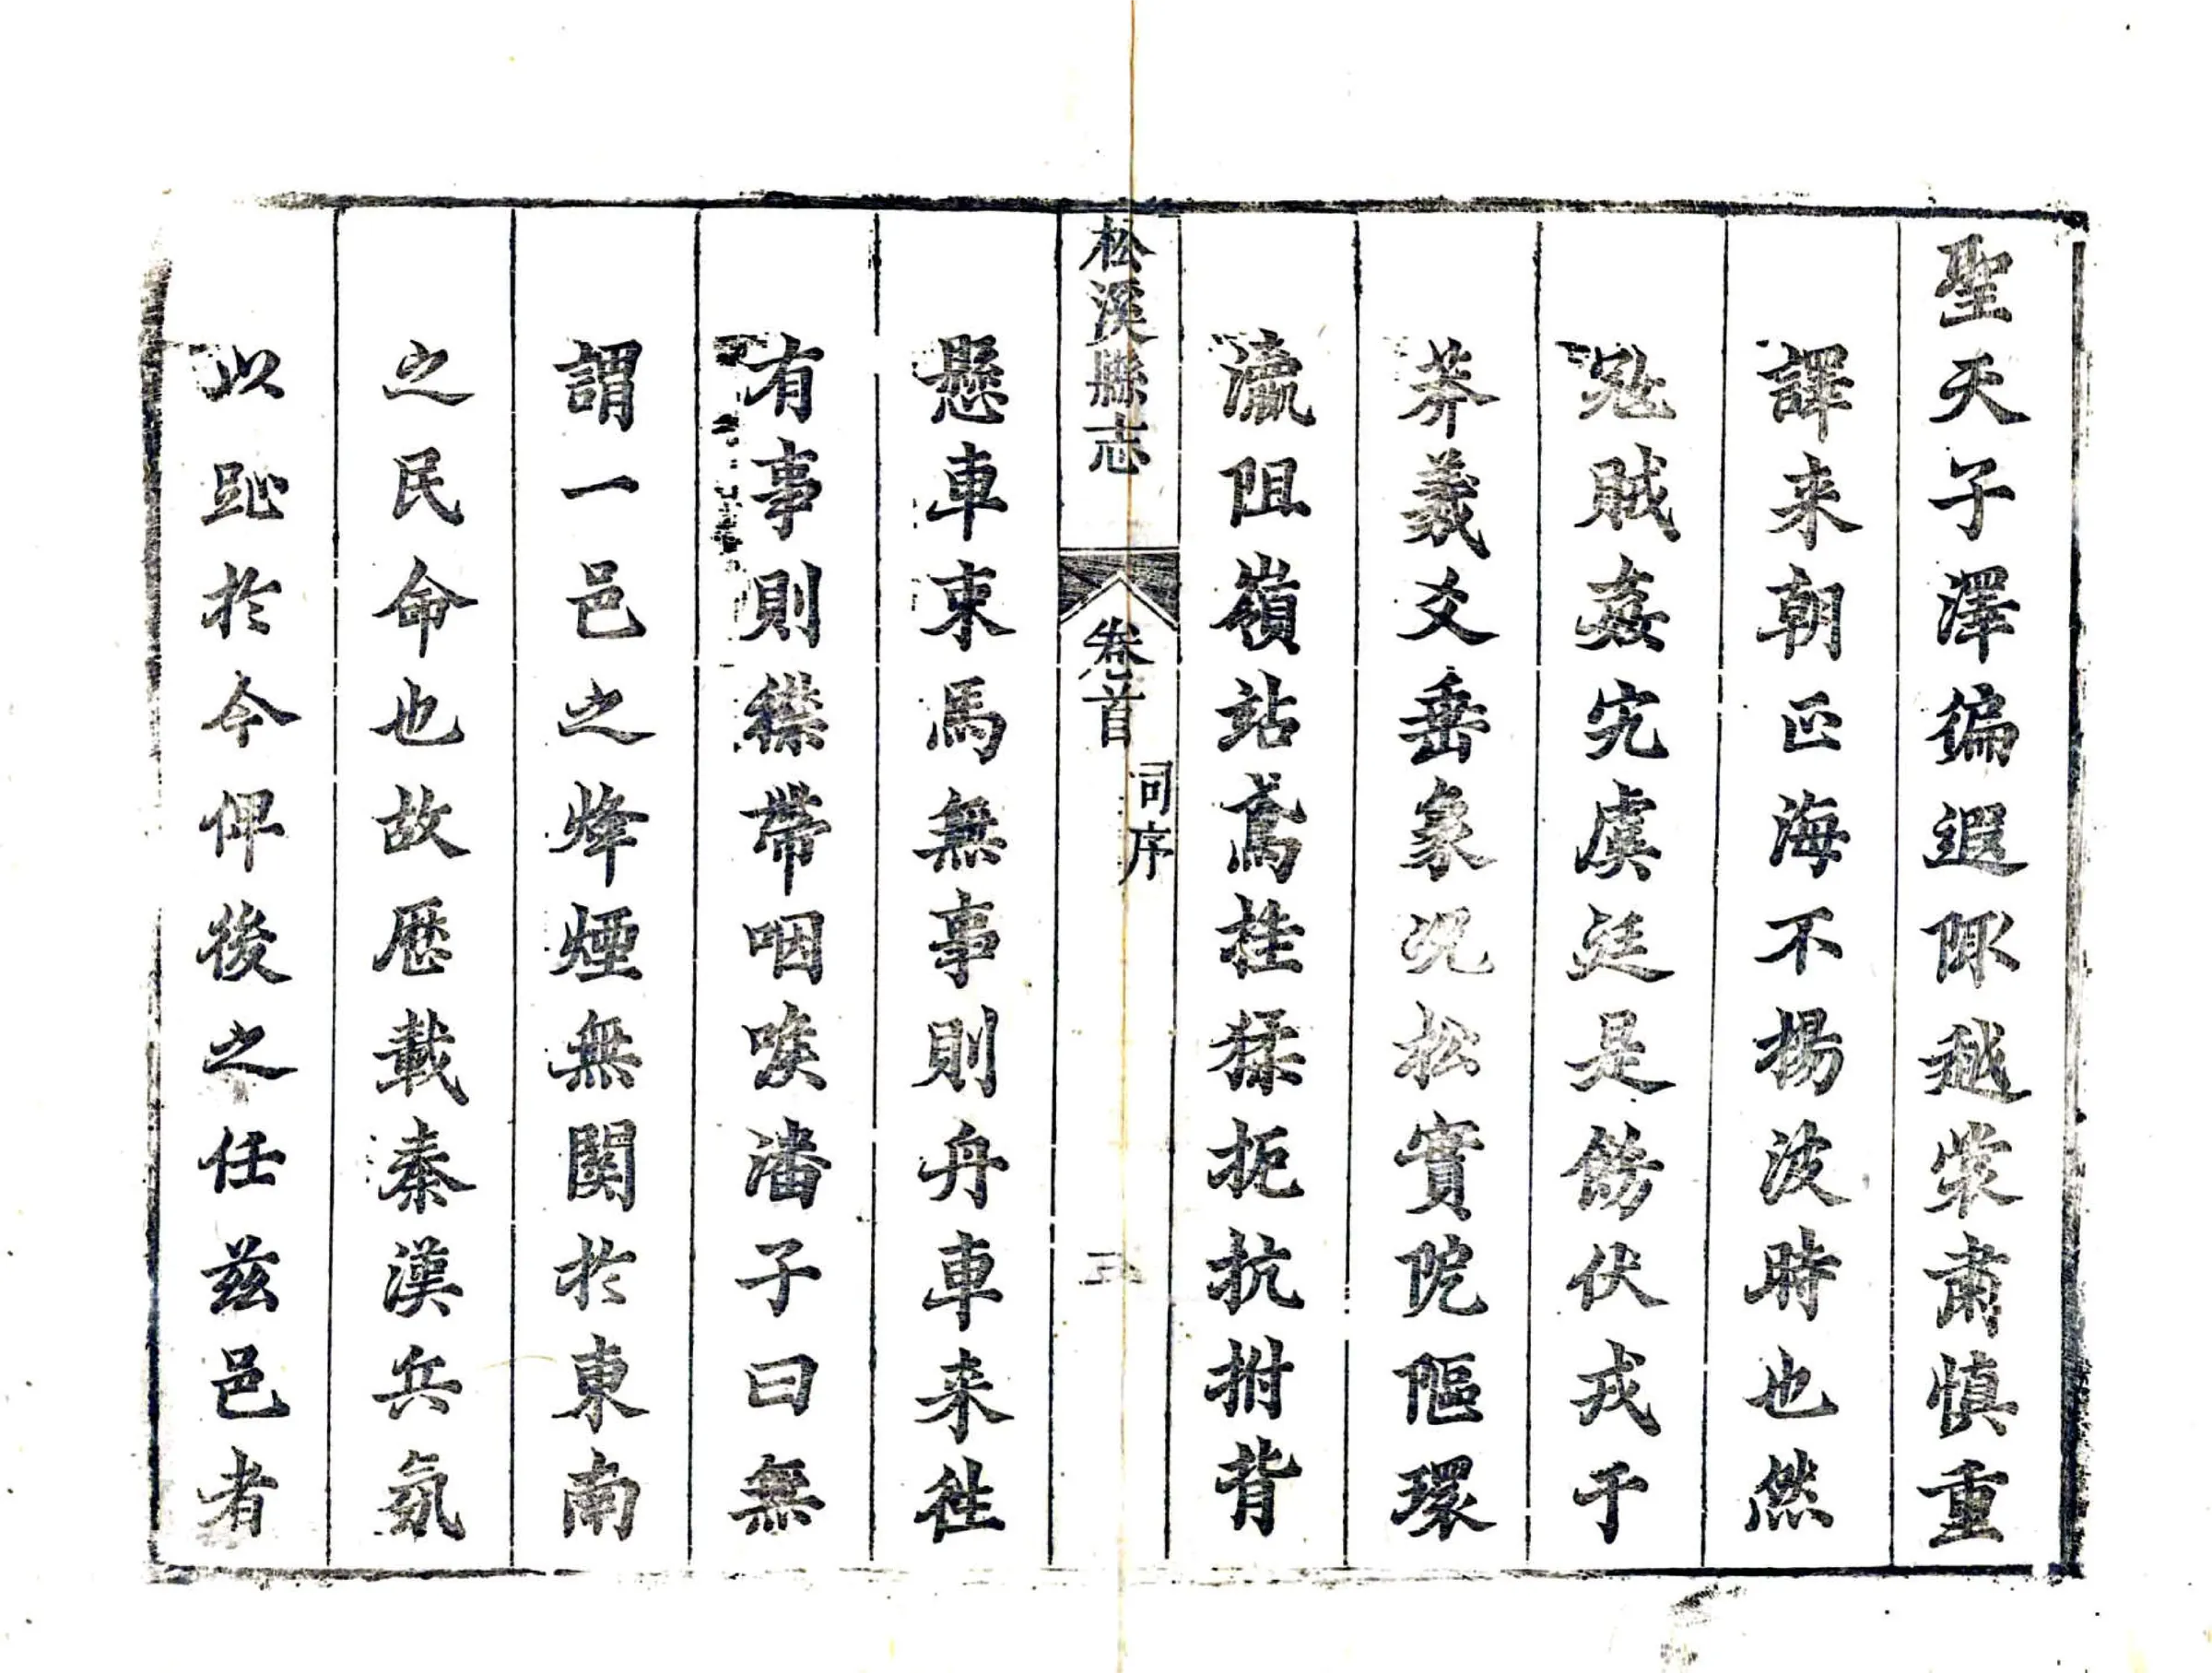 聖天子澤徧遐陬越裳肅慎重
譯来朝正海不揚波時也然
冦賊姦宄虞廷是飭伏戎于
莽羲爻垂象况松實阸傴環
瀛阻嶺站鳶挂猱扼抗拊背
松溪縣志
卷首
同序
三
懸車束馬無事則舟車来徃
有事則襟帶咽喉潘子曰無
謂一邑之烽煙無関於東南
之民命也故歴載秦漢兵氛
以趾於今俾後之任兹邑者